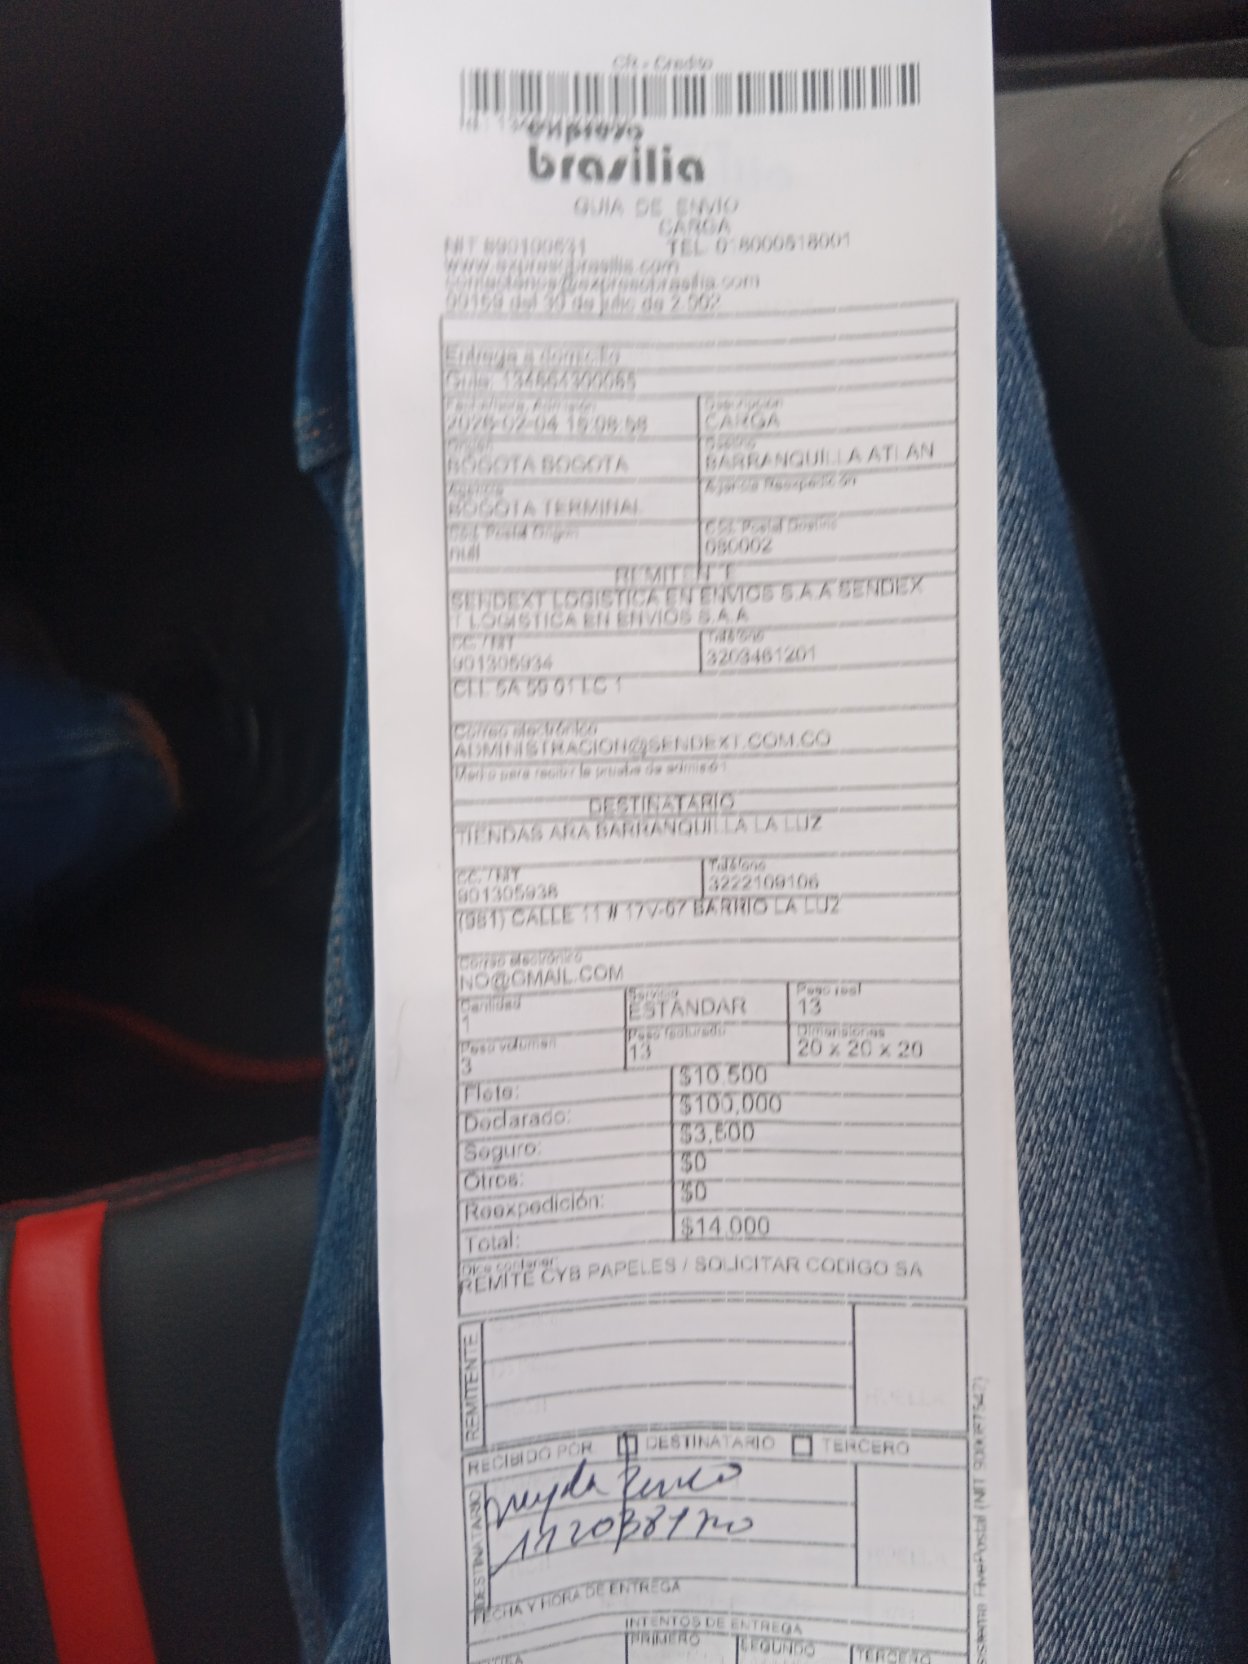 CR - Credito
expreso
brasilia
GUIA DE ENVIO
CARGA
NIT 890100531 TEL: 018000518001
www.expresobrasilia.com
contactenos@expresobrasilia.com
00169 del 30 de julio de 2.002
Entrega a domicilio
Guia:
Fecha/Hora Admisión Descripción
CARGA
Origen Destino
BOGOTA BOGOTA BARRANQUILLA ATLAN
Agencia Agencia Reexpedición
BOGOTA TERMINAL
Cód. Postal Origen Cód. Postal Destino
null 080002
REMITENTE
SENDEXT LOGISTICA EN ENVIOS S.A.A SENDEX
T LOGISTICA EN ENVIOS S.A.A
CC. / NIT Teléfono
901305934 3203461201
CLL 5A 59 01 LC 1
Correo electrónico
ADMINISTRACION@SENDEXT.COM.CO
Medio para recibir la prueba de admisión:
DESTINATARIO
TIENDAS ARA BARRANQUILLA LA LUZ
CC. / NIT Teléfono
901305936 3222109106
(981) CALLE 11 # 17V-07 BARRIO LA LUZ
Correo electrónico
NO@GMAIL.COM
Cantidad Servicio Peso real
1 ESTÁNDAR 13
Peso volumen Peso facturado Dimensiones
3 13 20 x 20 x 20
Flete: $10.500
Declarado: $100,000
Seguro: $3,500
Otros: $0
Reexpedición: $0
Total: $14.000
Dice contener:
REMITE CYB PAPELES / SOLICITAR CODIGO SA
REMITENTE
HUELLA
RECIBIDO POR DESTINATARIO TERCERO
DESTINATARIO
HUELLA
FECHA Y HORA DE ENTREGA
INTENTOS DE ENTREGA
PRIMERO SEGUNDO TERCERO